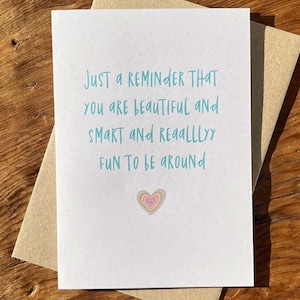 JUST A REMINDER THAT
YOU ARE BEAUTIFUL AND
SMART AND REAALLLYY
FUN TO BE AROUND